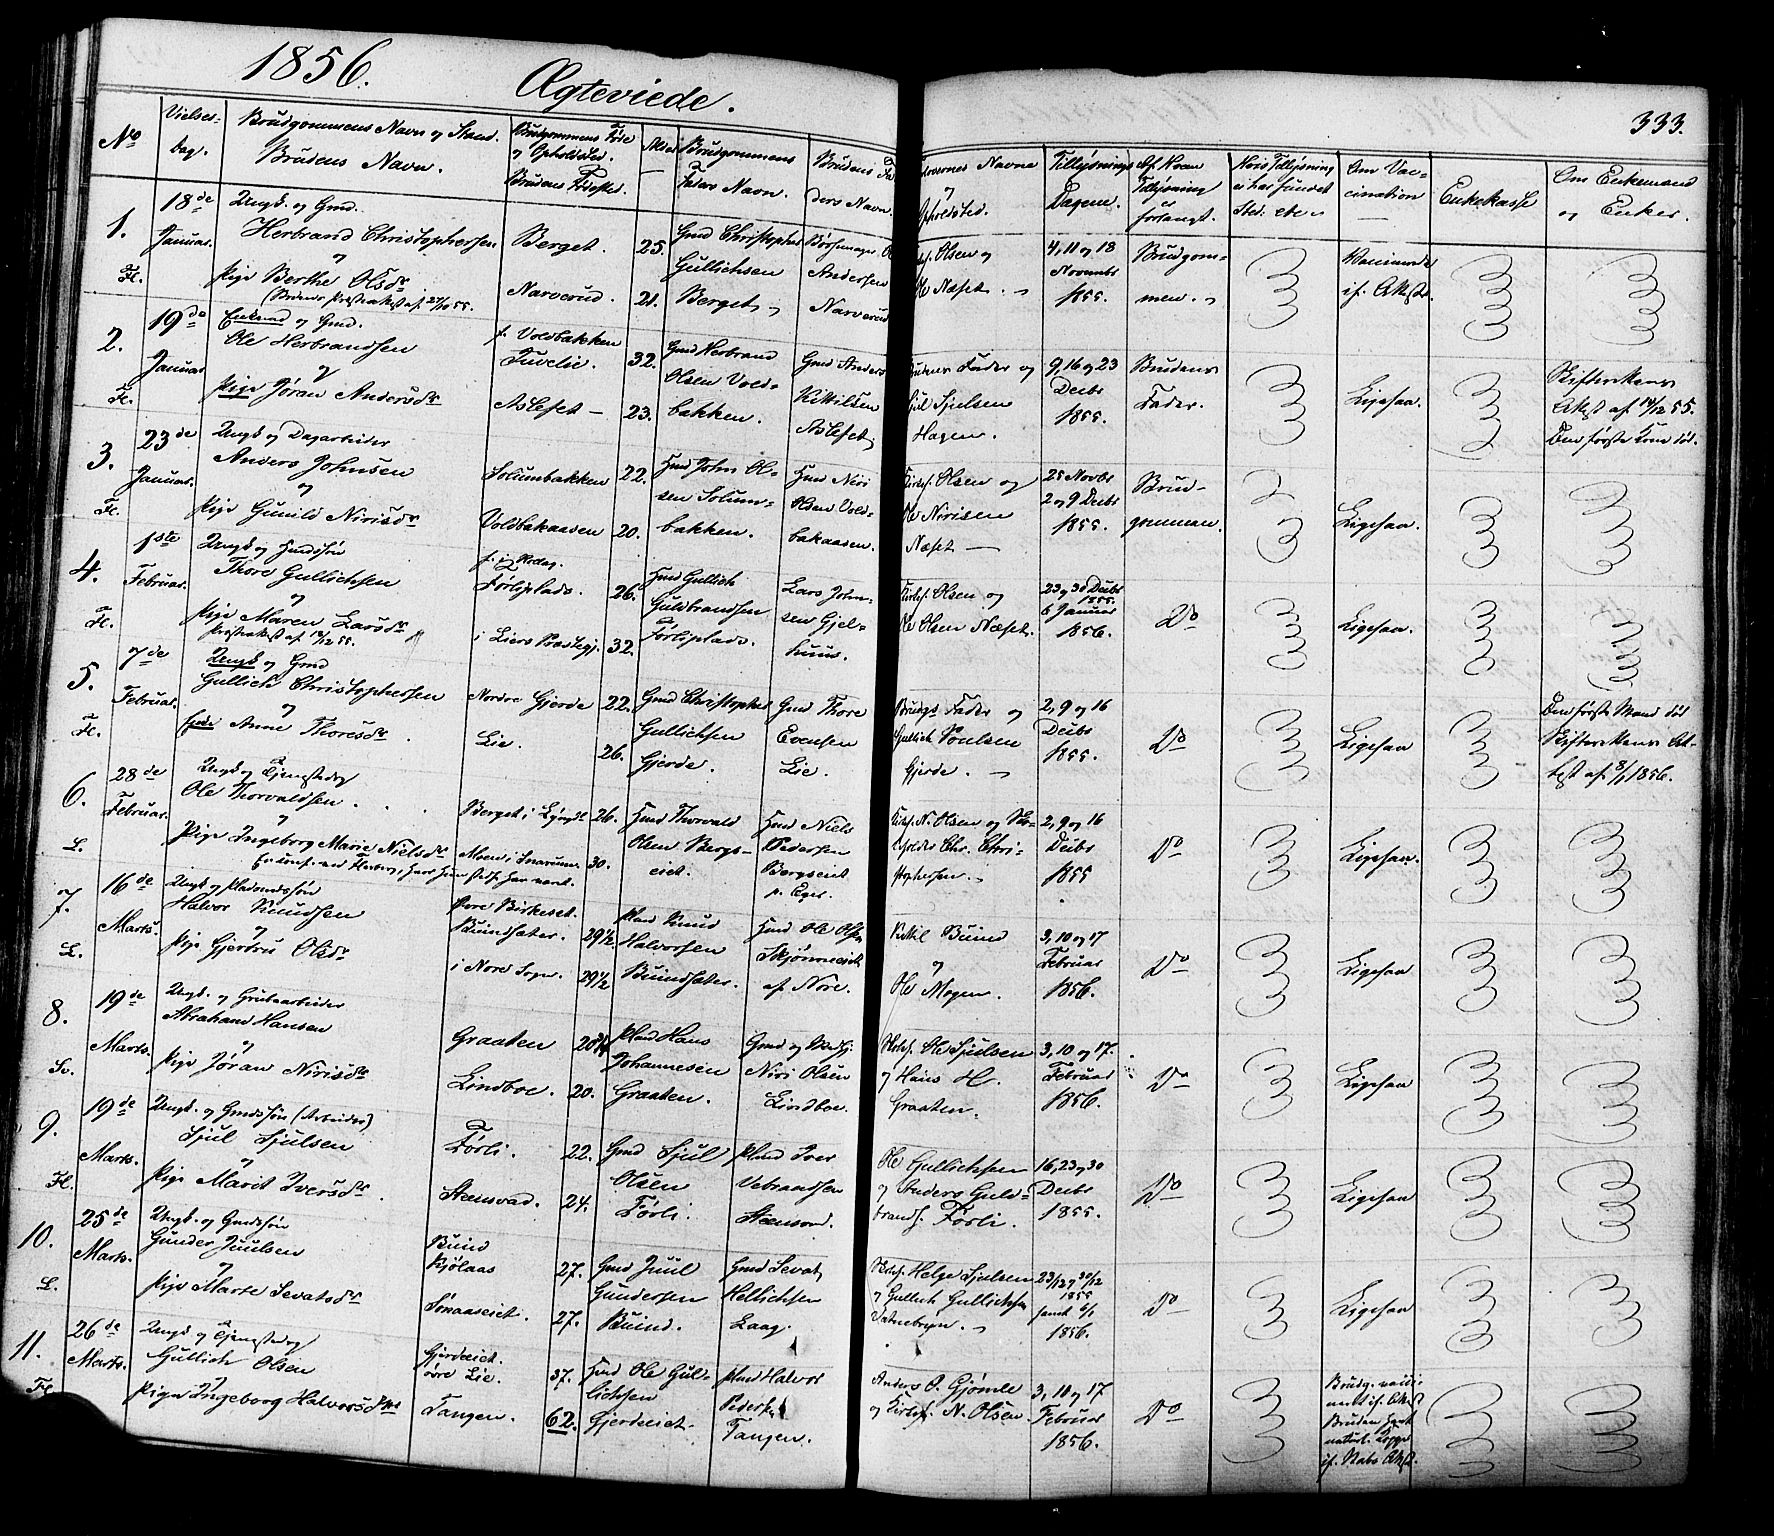 1856.
Ægteviede.
333.
No
Vielses-
dag.
Brudgommens Navn og Stand.
Brudens Navn.
Brudgommens Føde
og Opholdsted.
Brudens Fødested.
Alder
Brudgommens
Faders Navn.
Brudens Fa
ders Navn.
Navne
og
Opholdsted.
Tillysnings
Dagene.
Af hvem
Tillysning
er
forlangt.
Hvis Tillysning
ei har fundet
Sted. etc.
Om Vac-
cination
Enkekasse
Om Enkemænd
og Enker.
1.
18de
Januar.
Fl.
Ungk. og Gmd.
Herbrand Christophersen
og
Pige Berthe Olsdr
Berget.
Narverud.
25.
21.
Gmd Christopher
Gullichsen
Berget
Andersen
Narverud
Olsen og
Ole Næset.
4, 11 og 18
Novembr
1855.
Brudgom-
men.
Vaccinerede
if. Attester.
2.
19de
Januar
Fl.
Enkemd og Gmd.
Ole Herbrandsen
og
Pige Jøran Andersdr
f. Voldbakken
Tuvelie.
Aslefet
32.
23.
Gmd Herbrand
Olsen Vold-
bakken.
Gmd Anders
Kittilsen
Aslefet
Brudens Fader og
Sjul Sjulsen
Hagen.
9, 16 og 23
Decbr
1855.
Brudens
Fader.
Ligesaa.
Skifterettens
Attest af 14/12 55.
Den første Kone død.
3.
23de
Januar.
Fl.
Ungk og Dagarbeider
Anders Johnsen
og
Pige Gunild Nirisdr
Solumbakken
Voldbakaasen
22.
20.
Hmd John Ol-
sen Solum-
bakken.
Hmd Niri
Olsen Vold-
bakaasen.
Kirkes. Olsen og
Ole Nirisen
Næset
25 Novbr
2 og 9 Decbr
1855.
Brud-
gommen.
Ligesaa.
4.
1ste
Februar.
Fl.
Ungk og Hmdssøn
Thore Gullichsen
og
Pige Maren Larsdr
Præsteattest af 14/12 55.
Førliplads.
i Liers Præstegj.
26.
32.
Hmd Gullich
Guldbrandsen
Førliplads.
Lars John-
sen Gjel-
huus.
Kirkes. Olsen og
Ole Olsen Næset.
23 og 30 Decbr
1855.
6 Januar
1856.
Do
Ligesaa.
5.
7de
Februar.
Fl.
Ungk og Gmd
Gullich Christophersen
og
Enke Anne Thoresdr
Nordre Gjerde
Lie.
22.
26.
Gmd Christopher
Gullichsen
Gjerde.
Gmd Thore
Evensen
Lie.
Brudgs Fader og
Gullich Poulsen
Gjerde.
2, 9 og 16
Decbr
1855.
Do
Ligesaa
Den første Mand død
Skifterettens At-
test af 8/1 1856.
6.
28de
Februar.
L.
Ungk og Tjenestedrg
Ole Thorvaldsen
og
Pige Ingeborg Marie Nielsdr
Berget i Lyngdl
Moen i Snarum
26.
30.
Hmd Thorvald
Olsen Bergs-
eiet.
Hmd Niels
Pedersen
Bergseiet
p. Eger.
Kirkes. N. Olsen og
Chr. Chri-
stophersen.
2, 9 og 16
Decbr
1855
Do
Ligesaa.
7.
16de
Marts.
L.
Ungk og Pladsmandssøn
Halvor Knudsen
og
Pige Gjertru Olsdr
Buindsæter.
i Nore Sogn.
29 1/2
29 1/2
Plmd Knud
Halvorsen
Buindsæter.
Hmd Ole Olsen
Skjønneeiet
af Nore.
Kittil Buind
og
Ole Mogen.
3, 10 og 17
Februar
1856.
Do
Ligesaa
8.
19de
Marts.
Sv.
Ungk. og Grubearbeider
Abraham Hansen
og
Pige Jøran Nirisdr
Graaten
Lindboe.
20.
Plmd Hans
Johannesen
Graaten.
Gmd og
Niri Olsen
Lindboe.
Ole Sjulsen
og Hans H.
Graaten.
3, 10 og 17.
Februar
1856.
Do
Ligesaa
9.
19de
Marts.
Fl.
Ungk. og Gmdssøn (Arbeider)
Sjul Sjulsen
og
Pige Marit Iversdr
Førli.
Steensvad.
22.
24.
Gmd Sjul
Olsen
Førli.
Plmd Iver
Vebrandsen
Steensvad.
Ole Gullichsen
og Anders Guld-
brands. Førli.
16, 23 og 30
Decbr
1855.
Do
Ligesaa
10.
25de
Marts.
L.
Ungk. og Gmdssøn
Gunder Juulsen
og
Pige Marte Sevatsdr
Buind
Kjølaas
27.
27.
Gmd Juul
Gundersen
Buind.
Gmd Sevat
Hellichsen
Laag.
Helge Sjulsen
og Gullich Gullichsen
23/12 og 30/12
1855
samt 6/1
1856.
Do
Ligesaa
11.
26de
Marts.
Fl.
Ungk og Tjenestedrg
Gullich Olsen
og
Pigen Ingeborg Halvorsdr
Gjerdeeiet.
øvre Lie.
Tangen.
37.
62.
Hmd Ole Gul-
lichsen
Gjerdeeiet
Plmd Halvor
Peders.
Tangen.
Anders O. Gjømle
og Kirkes. N. Olsen
3, 10 og 17
Februar
1856.
Do
Brudg. vacci-
neret if. Attest
Bruden havt
naturl. Kopper
if. Attest.